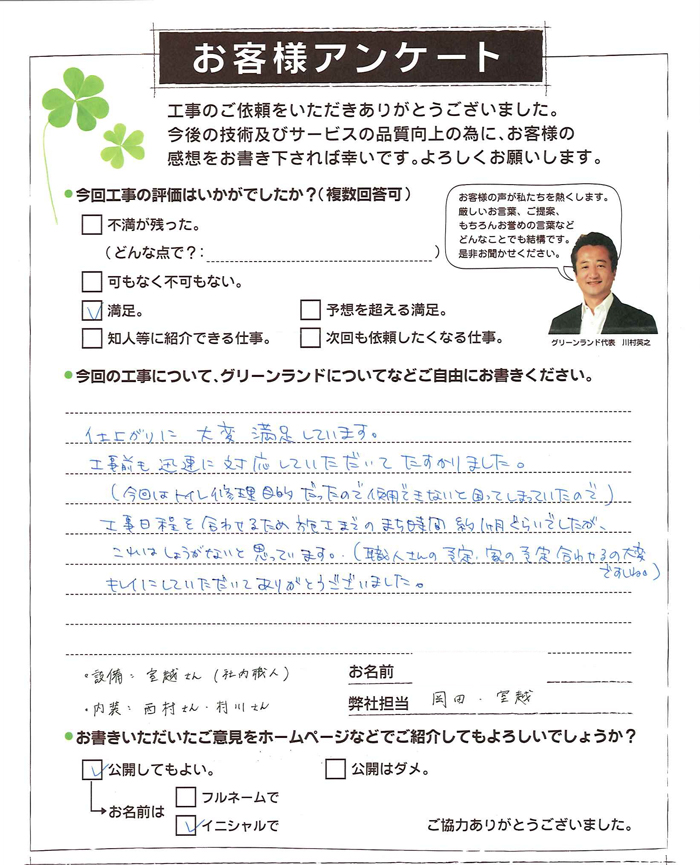 お客様アンケート
工事のご依頼をいただきありがとうございました。
今後の技術及びサービスの品質向上の為に、お客様の
感想をお書き下されば幸いです。よろしくお願いします。
今回工事の評価はいかがでしたか？（複数回答可）
不満が残った。
（どんな点で？：　）
可もなく不可もない。
満足。
予想を超える満足。
知人等に紹介できる仕事。
次回も依頼したくなる仕事。
お客様の声が私たちを熱くします。
厳しいお言葉、ご提案、
もちろんお誉めの言葉など
どんなことでも結構です。
是非お聞かせください。
グリーンランド代表　川村英之
今回の工事について、グリーンランドについてなどご自由にお書きください。
仕上がりに 大変 満足しています。
工事前も 迅速に 対応していただいて たすかりました。
（今回はトイレ修理目的だったので使用できないと困ってしまっていたので）
工事日程を合わせるため施工までのまち時間 約1ヶ月ぐらいでしたが、
これはしょうがないと思っています。（職人さんの予定・家の予定合わせるの大変
ですしね。）
キレイにしていただいてありがとうございました。
・設備：室越さん（社内職人）
・内装：西村さん・村川さん
お名前
弊社担当　岡田・室越
お書きいただいたご意見をホームページなどでご紹介してもよろしいでしょうか？
公開してもよい。
公開はダメ。
お名前は
フルネームで
イニシャルで
ご協力ありがとうございました。